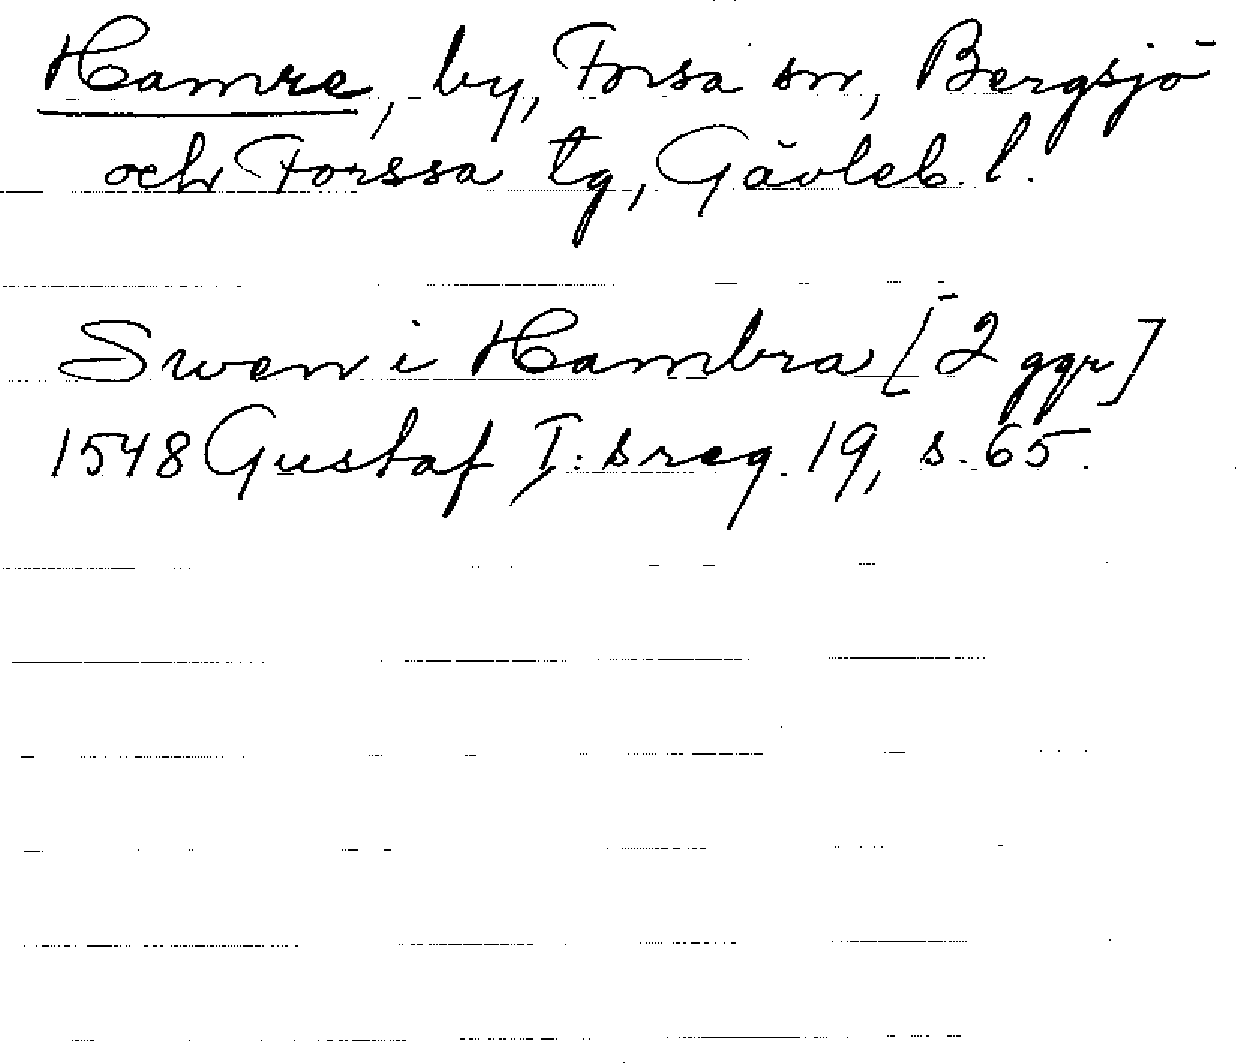 Hamre, by, Forsa sn, Bergsjö
och Forssa tg, Gävleb. l.
Swen i Hambra [2 ggr]
1548 Gustaf I:s reg. 19, s. 65.